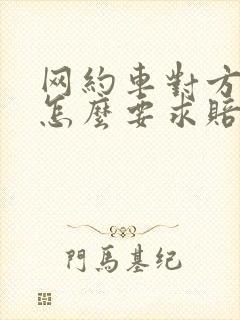 网約車對方
怎麼要求賠
門馬基纪